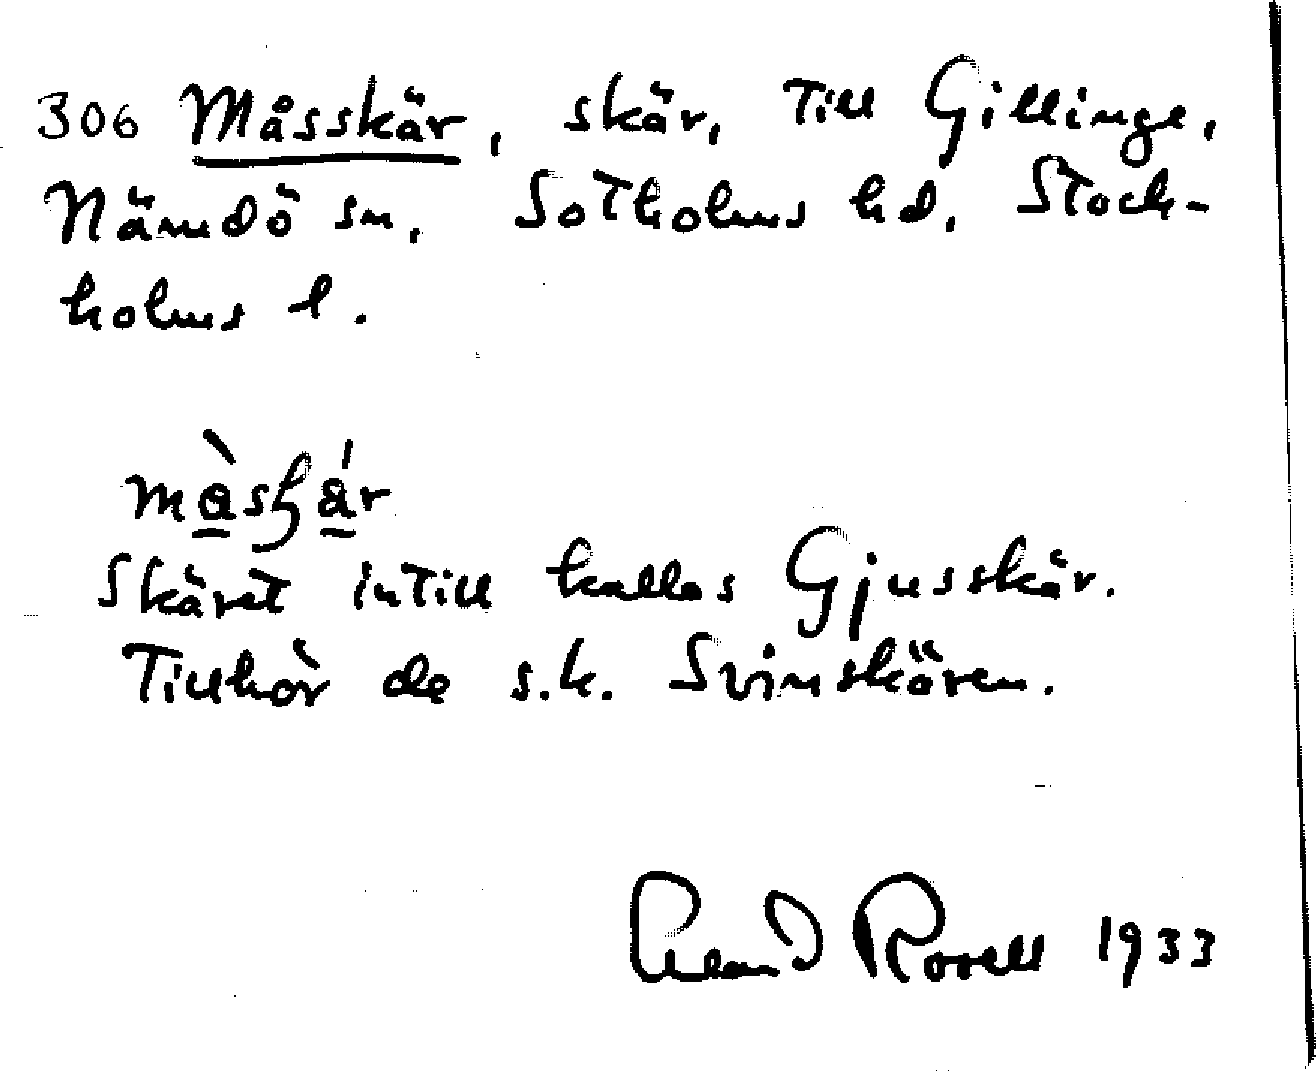 306 Måsskär, skär, till Gillinge,
Nämdö sn, Sotholms hd, Stock-
holms l.
Skäret intill kallas Gjusskär.
Tillhör de s.k. Svinskären.
Rosell 1933